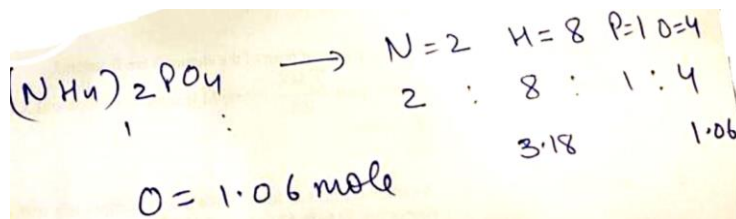 (NH4)2PO4 → N=2 H=8 P=1 O=4
2 : 8 : 1 : 4
1 :
3.18 1.06
O = 1.06 mole